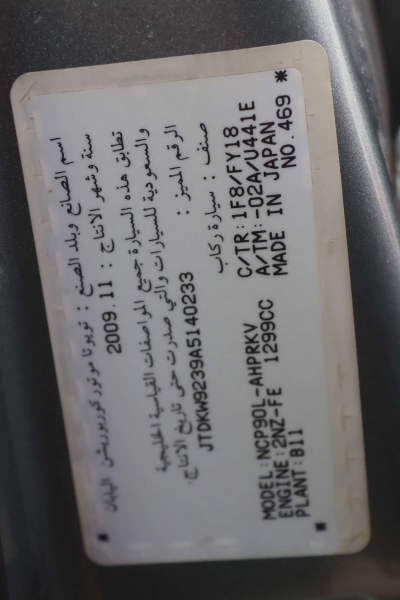 اسم الصانع وبلد الصنع : تويوتا موتور كوربوريشن اليابان
سنة وشهر الانتاج : 2009.11
تطابق هذه السيارة جميع المواصفات القياسية الخليجية
والسعودية للسيارات والتي صدرت حتى تاريخ الانتاج.
الرقم المميز : JTDKW9239A5140233
صنف : سيارة ركاب
MODEL:NCP90L-AHPRKV C/TR:1F8/FY18
ENGINE:2NZ-FE 1299CC A/TM:-02A/U441E
PLANT:B11 MADE IN JAPAN
NO.469 *